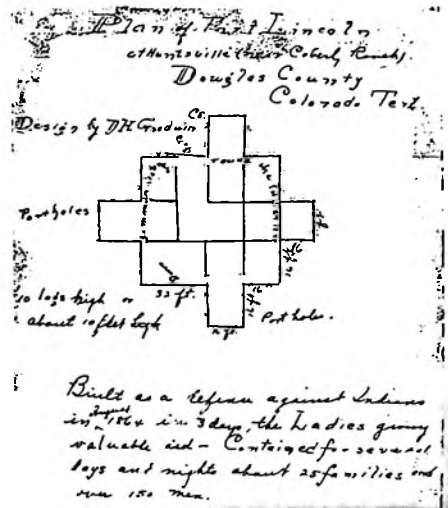 Plan of Fort Lincoln
at Huntsville (near Coberly Ranch)
Douglas County
Colorado Terr
Design by DH Goodwin
Port holes
10 logs high or
about 10 feet high
32 ft.
16 ft
16
16 ft
Door
Port holes.
Built as a defense against Indians
in August 1864 in 3 days, the Ladies giving
valuable aid - Contained for several
days and nights about 25 families and
over 150 men.